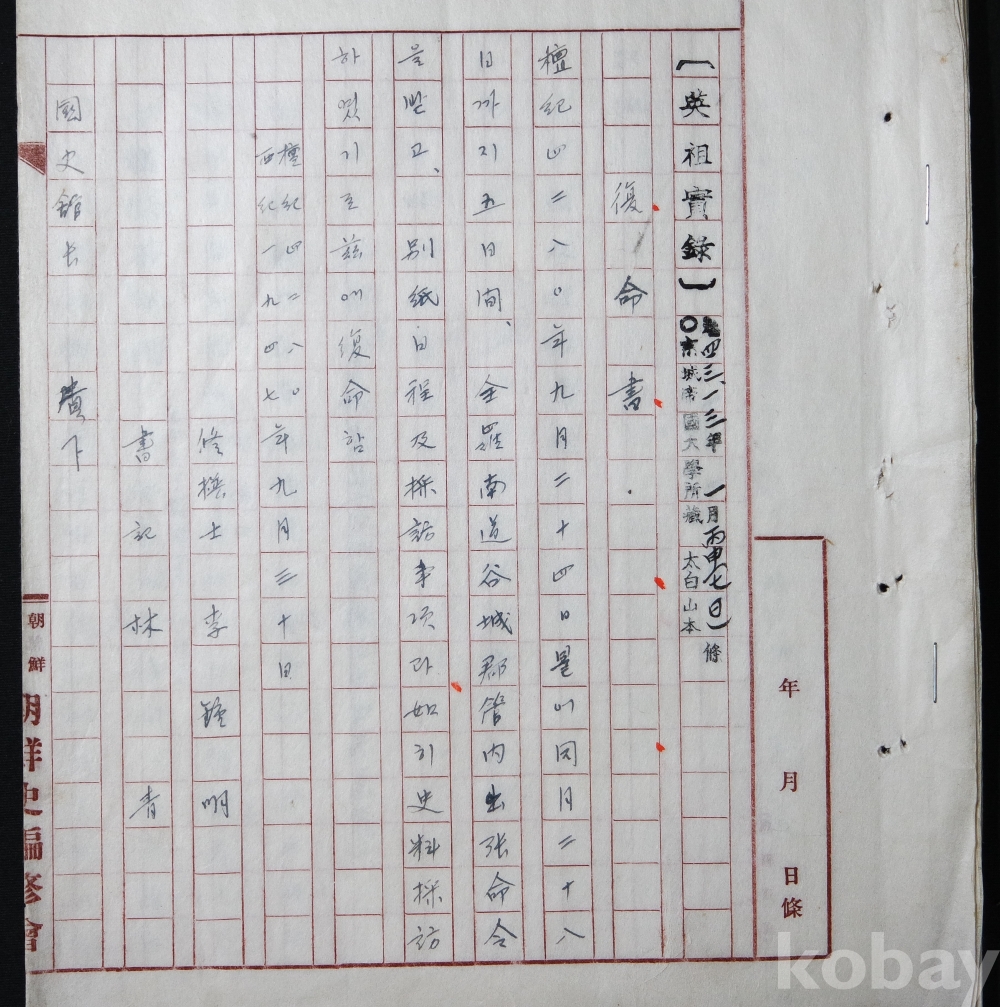 年 月 日條
【英祖實錄】
四三、一三年 一月丙申七日條
○京城帝國大學所藏 太白山本
復命書
檀紀四二八〇年九月二十四日로브터同月二十八
日까지五日間、全羅南道谷城郡管内出張命令
을받고、別紙日程及採訪事項과如히史料採訪
하였기로茲에復命함
檀紀四二八〇年九月三十日
西紀一九四七
修撰士 李鍾明
書記 林青
國史館长 貴下
朝鮮
朝鮮史編修會
kobay